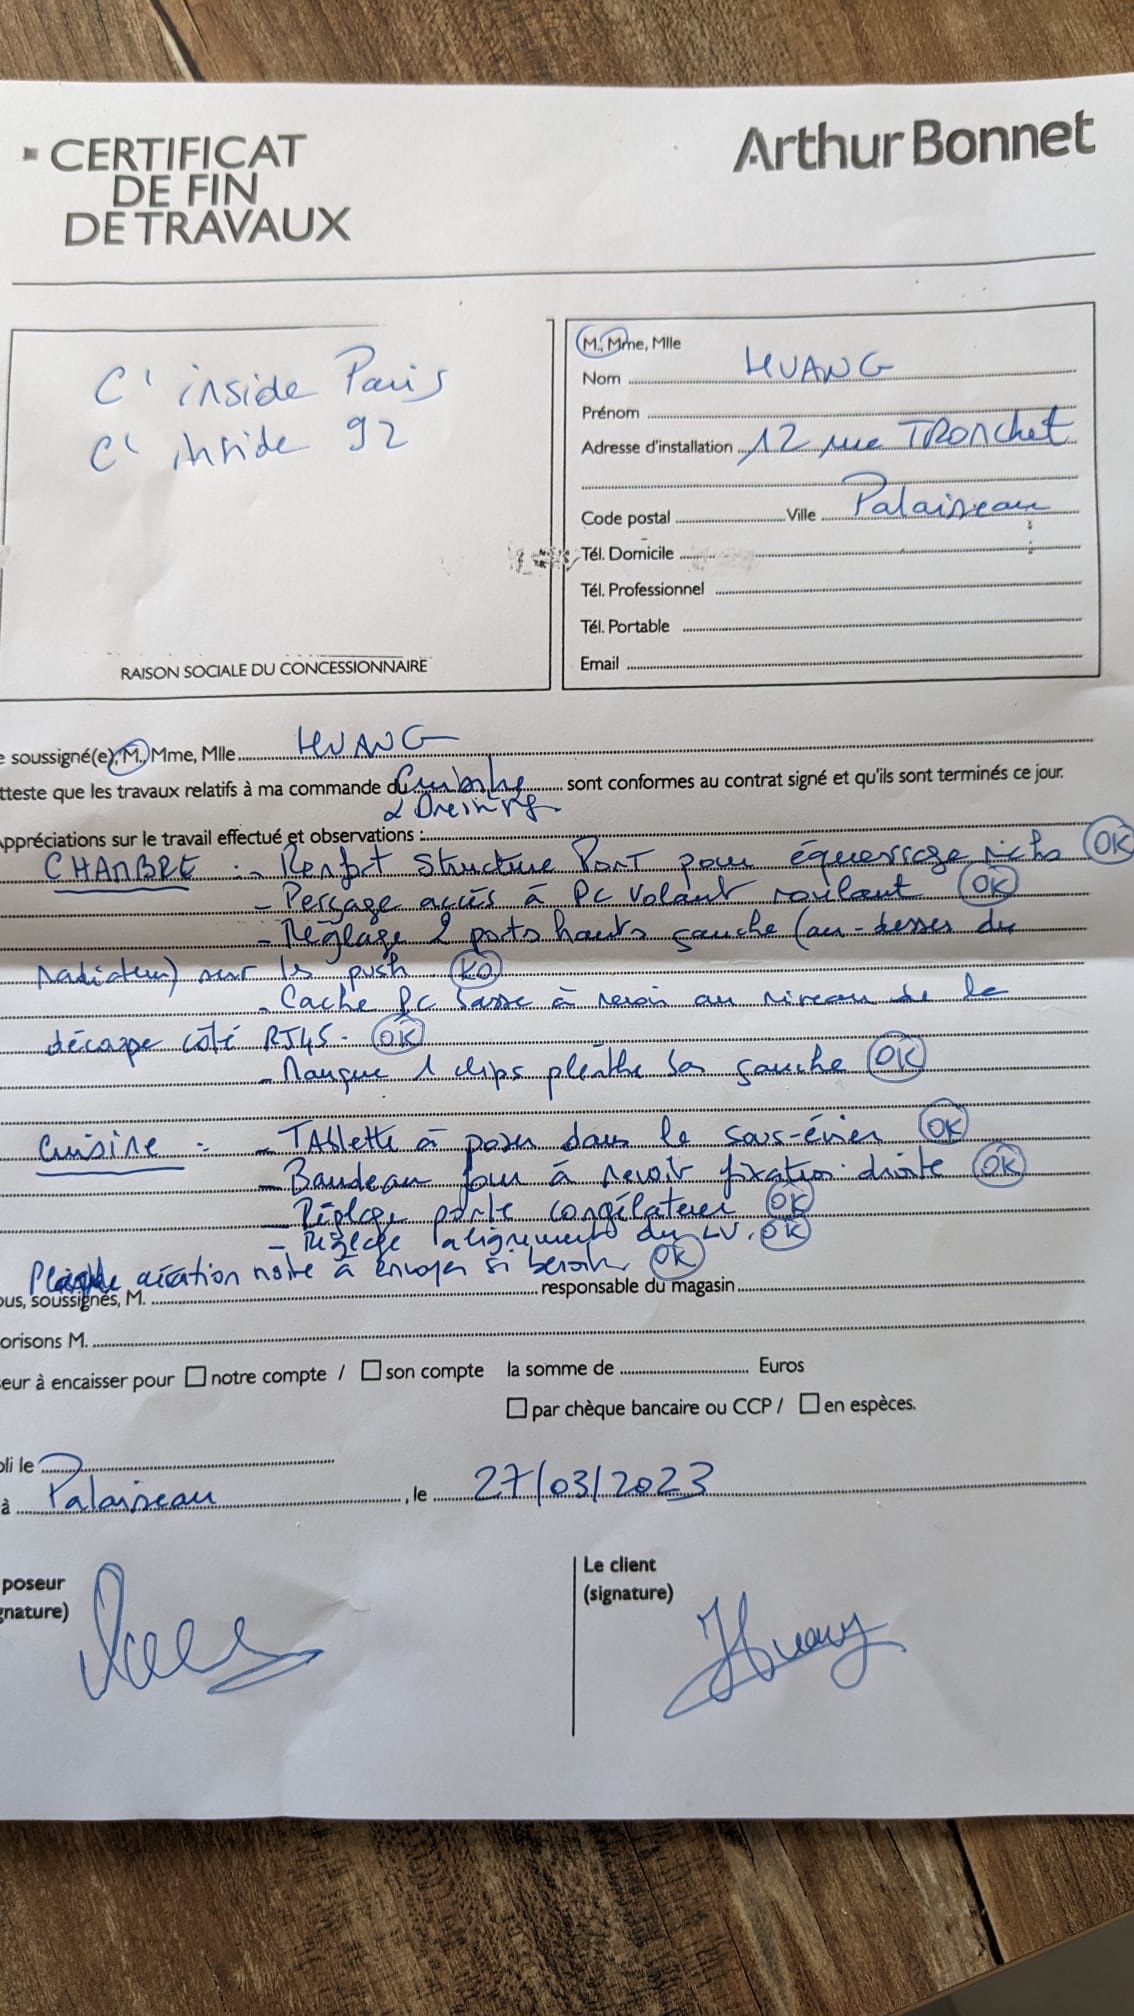 CERTIFICAT
DE FIN
DE TRAVAUX
Arthur Bonnet
C' inside Paris
C' inside 92
RAISON SOCIALE DU CONCESSIONNAIRE
M., Mme, Mlle
Nom HUANG
Prénom
Adresse d'installation 12 rue TRONCHET
Code postal Ville Palaiseau
Tél. Domicile
Tél. Professionnel
Tél. Portable
Email
e soussigné(e), M., Mme, Mlle HUANG
tteste que les travaux relatifs à ma commande du Cuisine sont conformes au contrat signé et qu'ils sont terminés ce jour.
& Dressing
Appréciations sur le travail effectué et observations :
CHAMBRE : - Renfort structure PONT pour équerrage OK
- Perçage accès à PC volant roulant OK
- Réglage 2 ports hauts gauche (au-dessus du
radiateur) sur les push KO
- Cache PC basse à revoir au niveau de la
découpe côté RJ45. OK
- Manque 1 clips plinthe bas gauche OK
Cuisine : - TAblette à poser dans le sous-évier OK
- Bandeau four à revoir fixation droite OK
- Réglage porte congélateur OK
- Réglage alignement du LV. OK
aération noire à envoyer si besoin OK
ous, soussignés, M. responsable du magasin
orisons M.
eur à encaisser pour notre compte / son compte la somme de Euros
par chèque bancaire ou CCP / en espèces.
bli le
à Palaiseau , le 27/03/2023
poseur
gnature)
Le client
(signature)
Huang